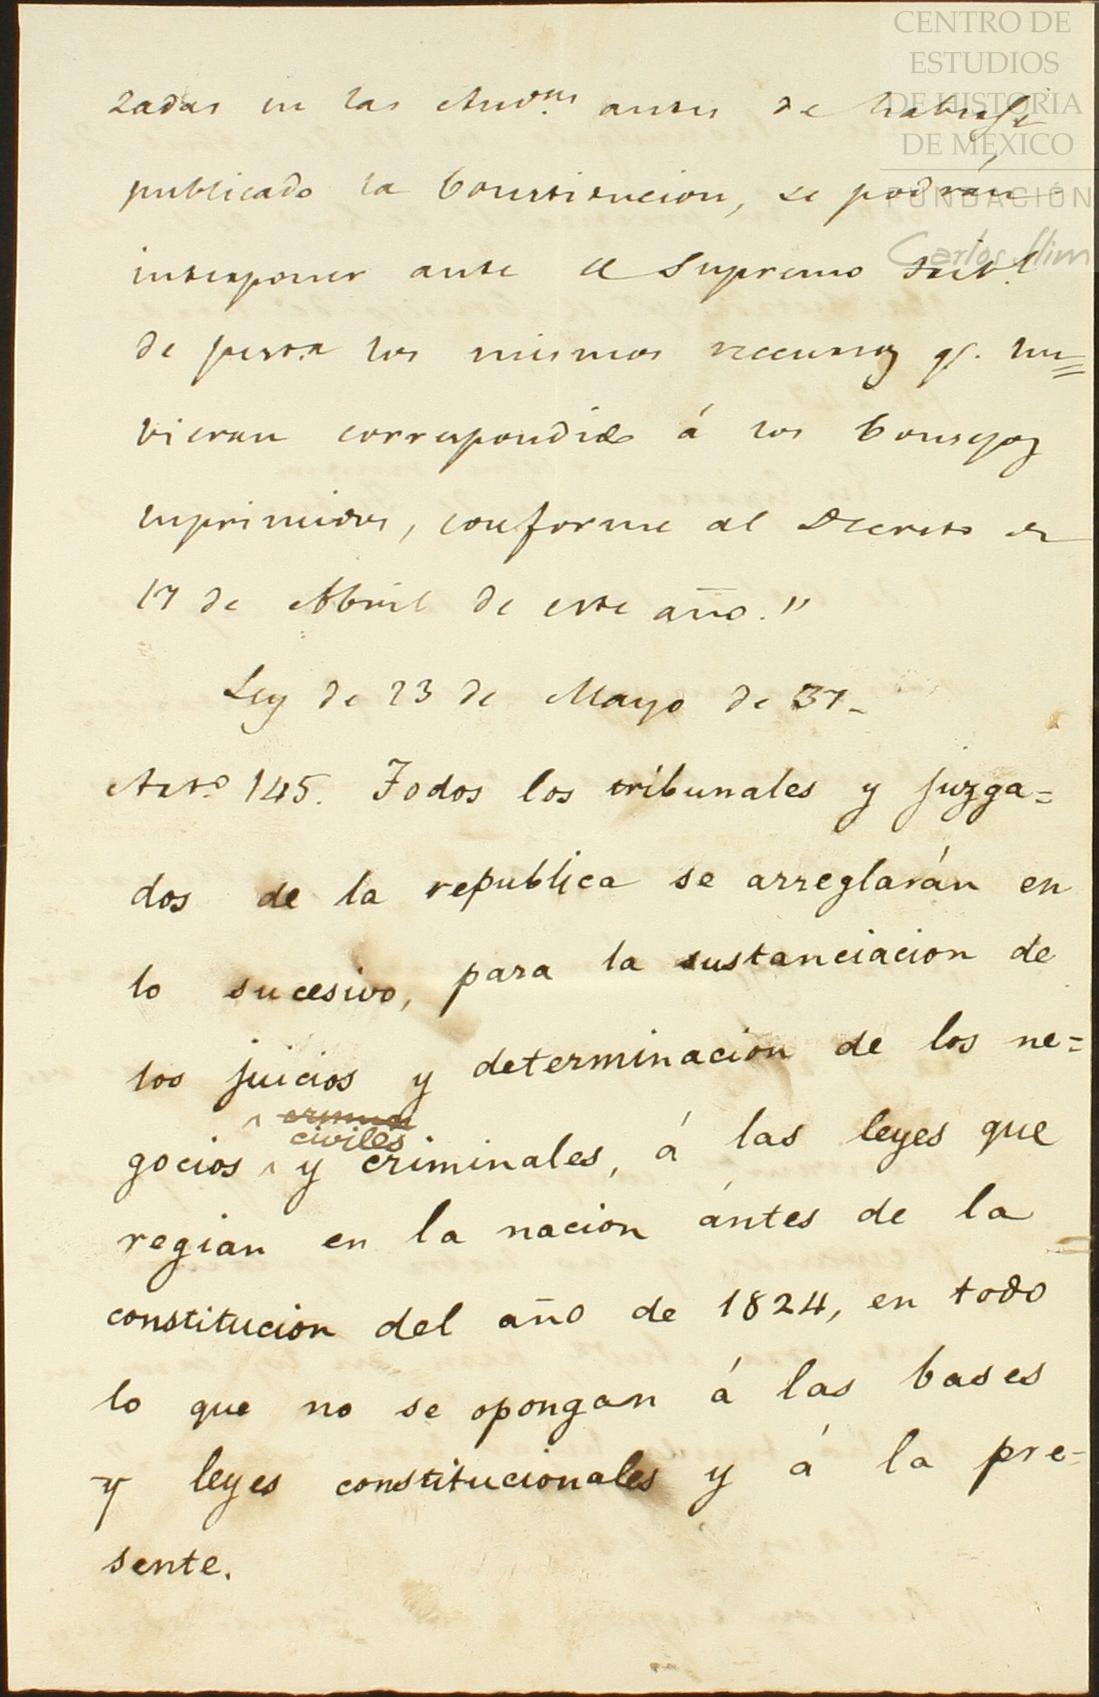 CENTRO DE
ESTUDIOS
DE HISTORIA
DE MÉXICO
FUNDACIÓN
Carlos Slim
zadas en las Aud.nas antes de haberse
publicado la Constitucion, se podrán
interponer ante el Supremo trib.l
de just.a los mismos recursos q.e hu=
bieran correspondido á los Consejos
suprimidos, conforme al Decreto de
17 de Abril de este año."
Ley de 23 de Mayo de 37.
Art.o 145. Todos los tribunales y juzga=
dos de la republica se arreglarán en
lo sucesivo, para la sustanciacion de
los juicios y determinacion de los ne=
civiles
gocios y criminales, á las leyes que
regian en la nacion ántes de la
constitucion del año de 1824, en todo
lo que no se opongan á las bases
y leyes constitucionales y á la pre=
sente.